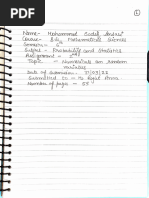 1
Name- Mohammad Sadik Ansari
Course- B.Sc. Mathematical Sciences
Semester - 5th
Subject - Probability and Statistics
Assignment = 2nd
Topic = Numericals on Random
variables
Date of Submission - 31/03/22
Submitted to = Ms
Number of page =